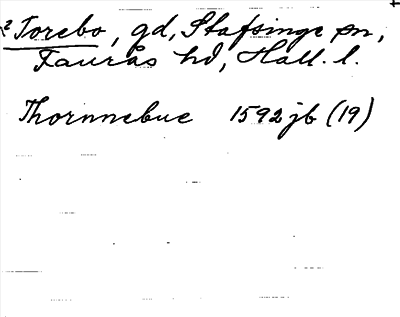 2 Torebo, gd, Stafsinge sn,
Faurås hd, Hall. l.
Thornnebue 1592 jb (19)